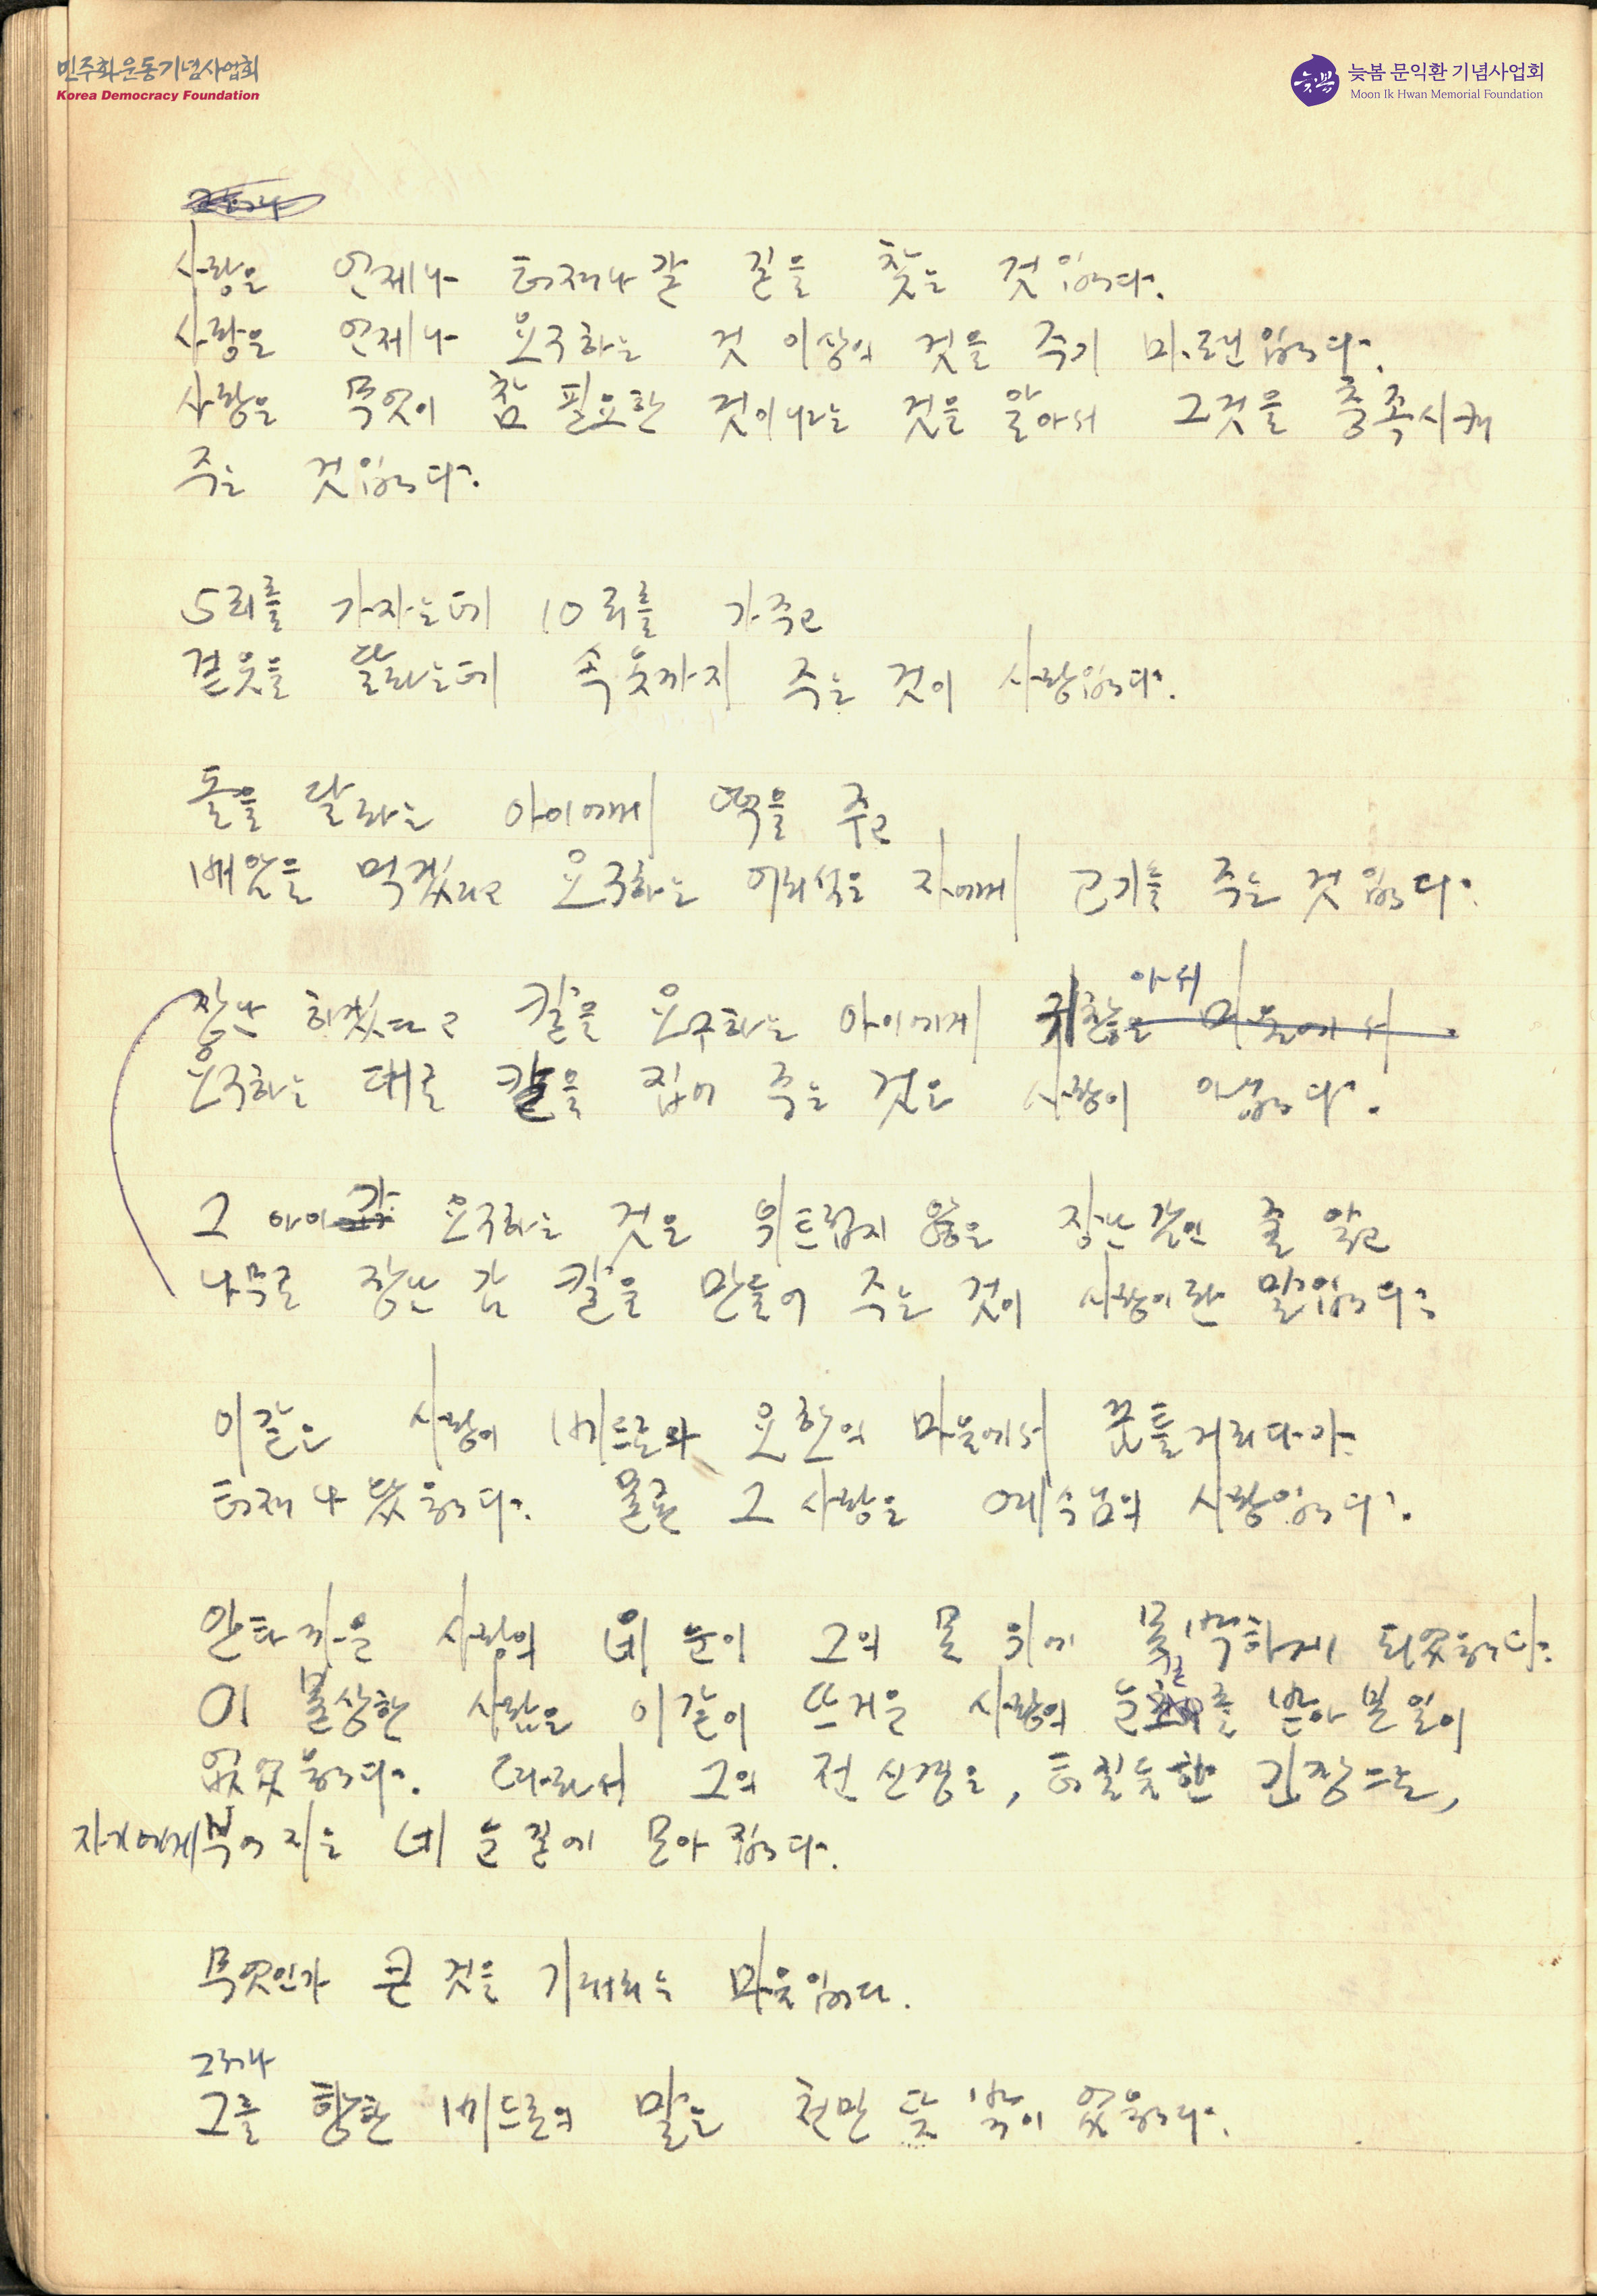 민주화운동기념사업회
Korea Democracy Foundation
늦봄 문익환 기념사업회
Moon Ik Hwan Memorial Foundation
사랑은 언제나 터져나갈 길을 찾는 것입니다.
사랑은 언제나 요구하는 것 이상의 것을 주기 마련입니다.
사랑은 무엇이 참 필요한 것이냐는 것을 알아서 그것을 충족시켜
주는 것입니다.
5리를 가자는데 10리를 가주고
겉옷을 달라는데 속옷까지 주는 것이 사랑입니다.
돌을 달라는 아이에게 떡을 주고
배암을 먹겠다고 요구하는 어리석은 자에게 고기를 주는 것입니다.
장난하겠다고 칼을 요구하는 아이에게 귀찮아서
요구하는 대로 칼을 집어 주는 것은 사랑이 아닙니다.
그 아이가 요구하는 것은 위트럽지 않은 장난감인 줄 알고
나무로 장난감 칼을 만들어 주는 것이 사랑이란 말입니다.
이같은 사랑이 베드로와 요한의 마음에서 꿈틀거리다가
터져나왔읍니다. 물론 그 사랑은 예수님의 사랑입니다.
안타까운 사랑의 네 눈이 그의 몸 위에 못박히게 되었읍니다.
이 불상한 사람은 이같이 뜨거운 사랑의 눈길을 받아 본 일이
없었읍니다. 따라서 그의 전 신경은, 터질듯한 긴장으로,
자기에게 부어지는 네 눈길에 모아집니다.
무엇인가 큰 것을 기대하는 마음입니다.
그러나
그를 향한 베드로의 말는 천만 뜻밖이었읍니다.